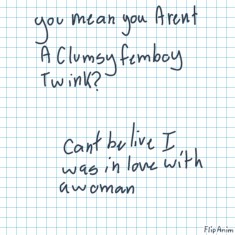 you mean you Arent
A Clumsy femboy
Twink?
Cant be live I
was in love with
a woman
FlipAnim